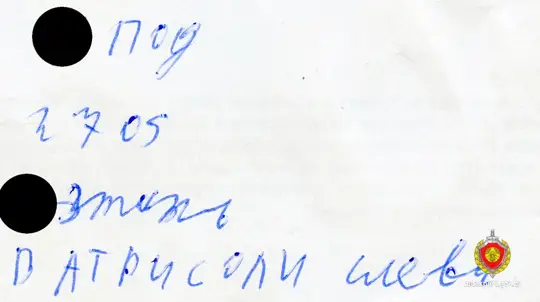 под
2705
этаж
ПАТРИСОЛИ слева